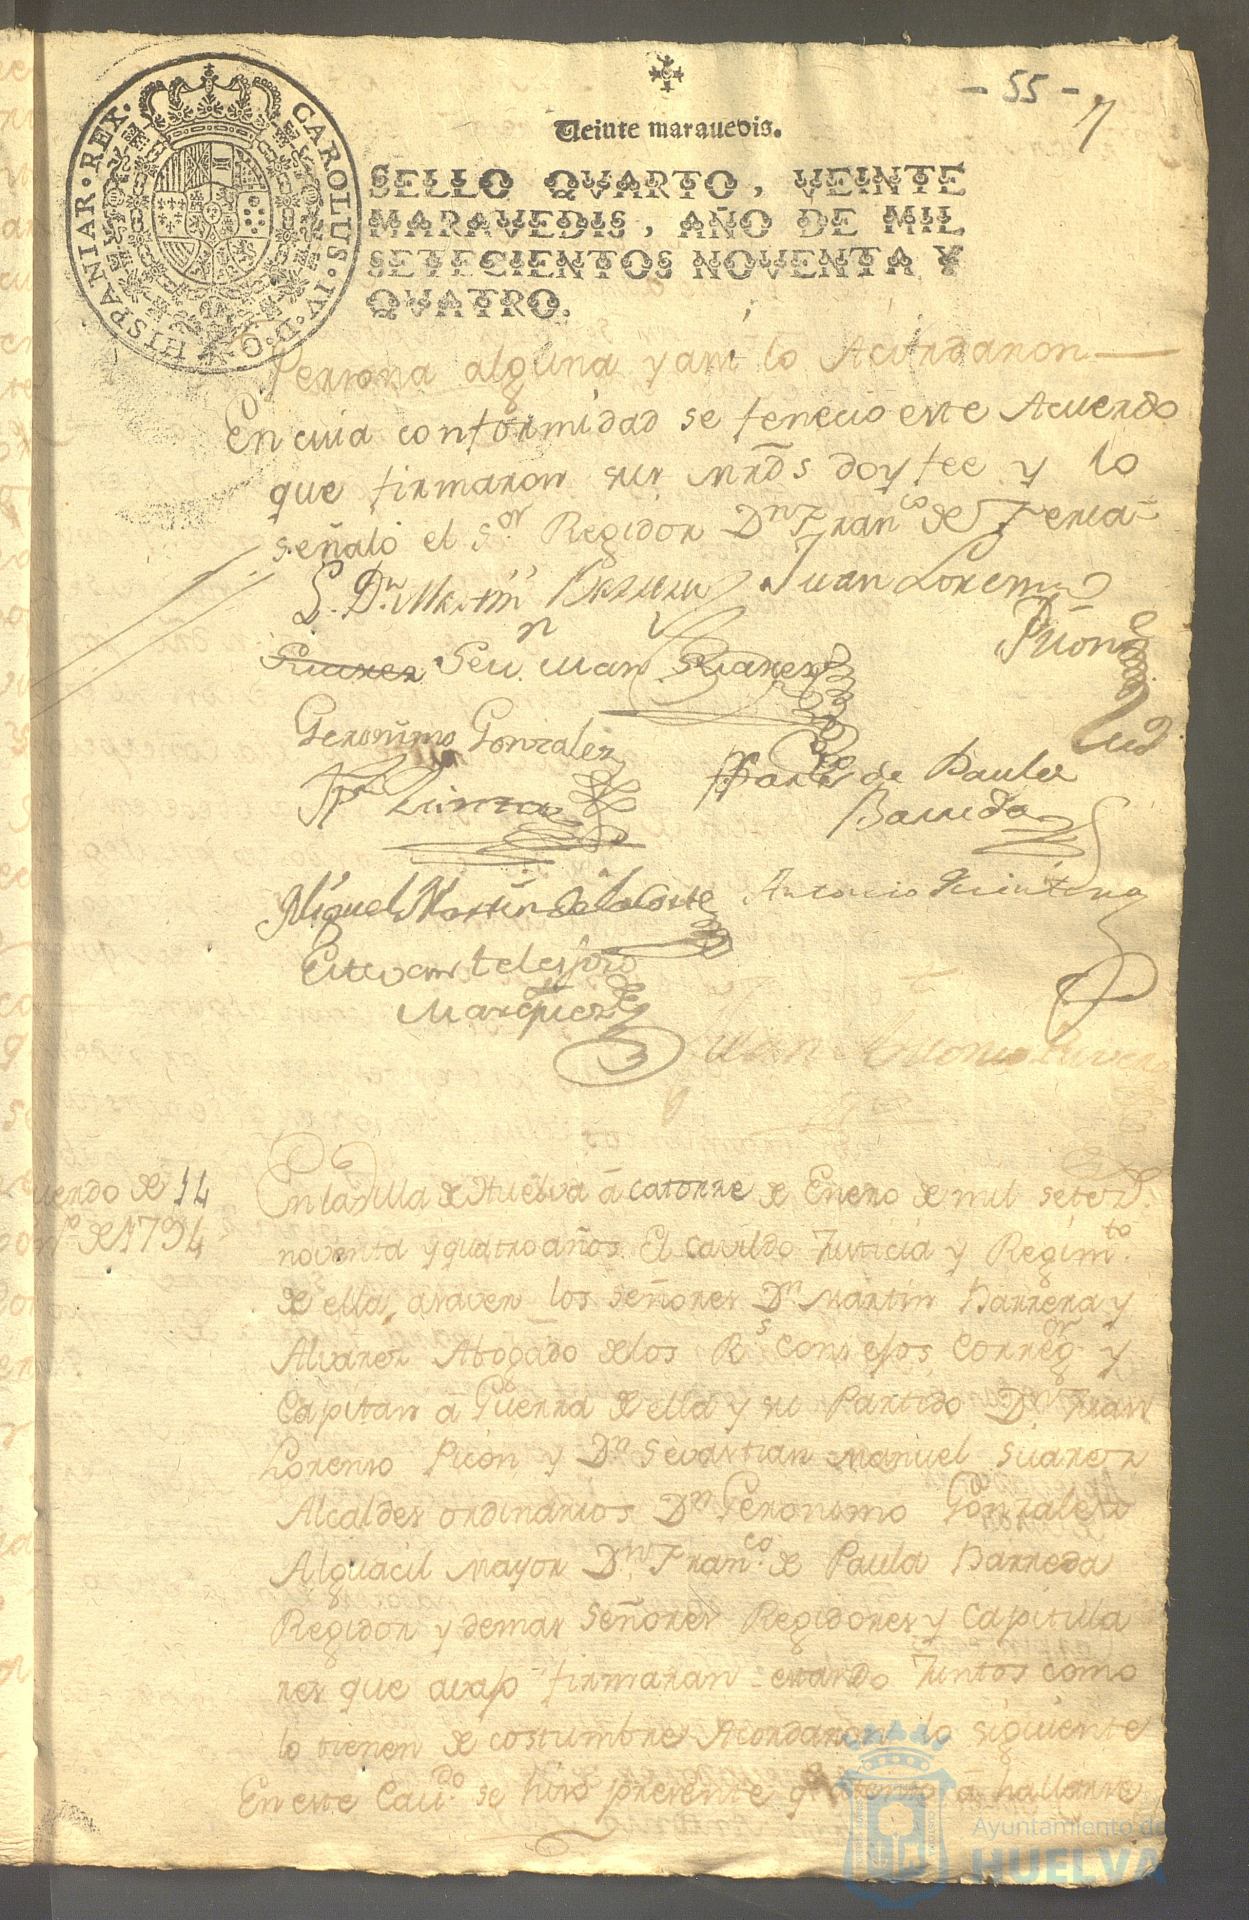 - 55 -
Veinte marauedis.
CAROLUS · IV · D · G · HISPANIAR · REX ·
SELLO QVARTO, VEINTE
MARAVEDIS, AÑO DE MIL
SETECIENTOS NOVENTA Y
QVATRO.
Persona alguna y asi lo Acordaron
En cuia conformidad se fenecio este Acuerdo
que firmaron sus Mrds doy fee y lo
señalo el Sor Regidor Dn Franco de Feria
L. Dn Martin Barrera Juan Lorenzo
Picon
Suarez Sevn Man Suarez
Geronimo Gonzalez
Franco de Paula
Barreda
Miguel Martin de la Corte Antonio Quintana
Estevan telesforo
Marquez
Juan Antonio River
uerdo de 14
de 1794
En la Villa de Huelva á catorre de Enero de mil setezs.
noventa y quatro años. El Cavildo Justicia y Regimto.
de ella, asaver los señores Dn Martin Barrera y
Alvarez Abogado delos Rs Consejos Corregor y
Capitan á Guerra de ella y su Partido Dn Juan
Lorenso Picon, y Dn Sevastian Manuel Suarez
Alcaldes ordinarios Dn Geronimo Gonzalez
Alguacil Mayor Dn Franco. de Paula Barreda
Regidor y demas Señores Regidores y Capitula
res que avajo firmaran estando Juntos como
lo tienen de costumbre Acordaron lo siguiente
En este Cavdo. se hizo presente qe atento á hallarse
Ayuntamiento de
HUELVA